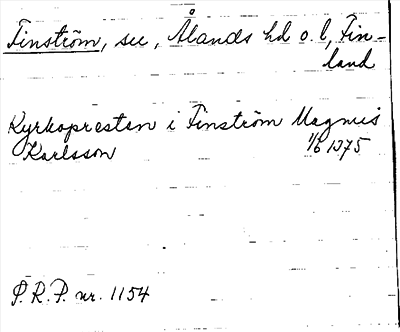 Finström, sn, Ålands hd o. l, Fin-
land
Kyrkopresten i Finström Magnus
Karlsson 1/6 1375
P. R. P. nr. 1154